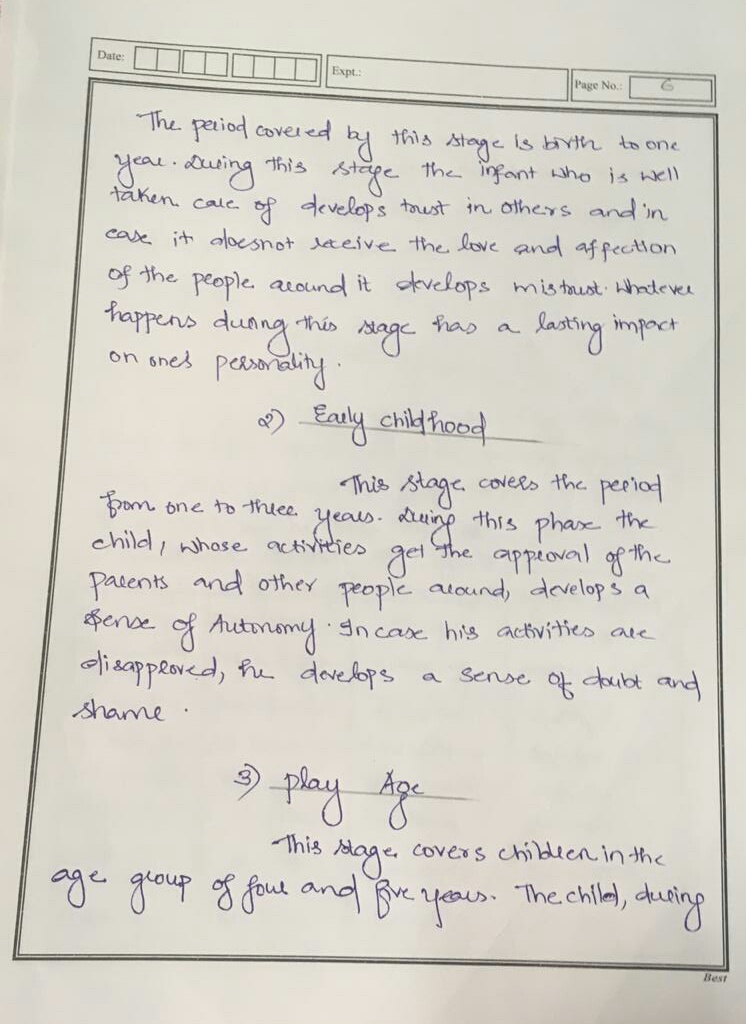 Date:
Expt.:
Page No.: 6
The period covered by this stage is birth to one
year. During this stage the infant who is well
taken care of develops trust in others and in
case it doesnot receive the love and affection
of the people around it develops mistrust. Whatever
happens during this stage has a lasting impact
on one's personality.
2) Early childhood
This stage covers the period
from one to three years. During this phase the
child, whose activities get the approval of the
parents and other people around, develops a
sense of Autonomy. In case his activities are
disapproved, he develops a sense of doubt and
shame.
3) play Age
This stage covers children in the
age group of four and five years. The child, during
Best